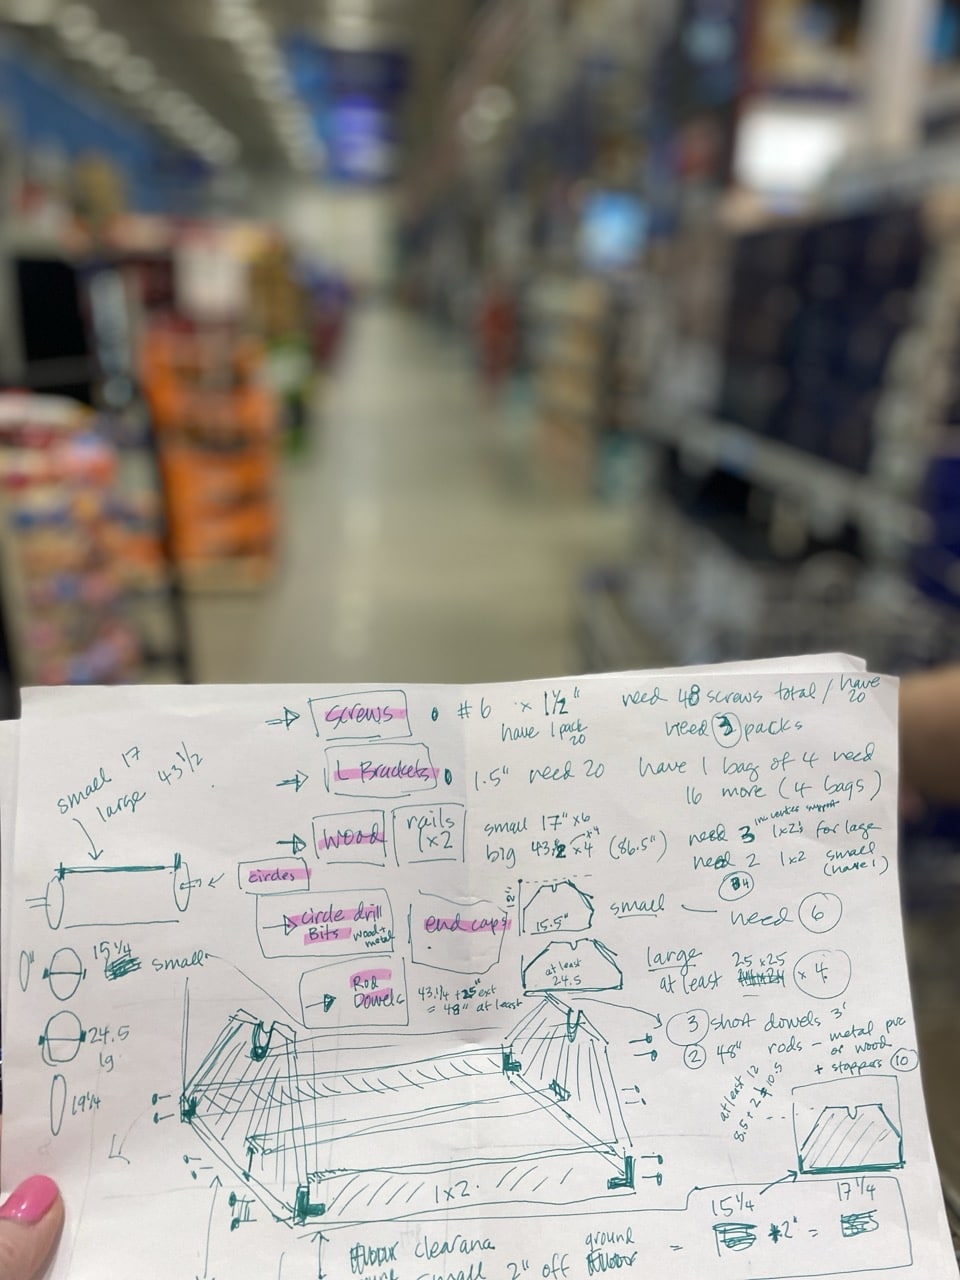 screws
#6 x 1½"
have 1 pack
20
need 48 screws total / have
20
need 2 packs
L Brackets
1.5" need 20
have 1 bag of 4 need
16 more (4 bags)
small 17
large 43½
wood
rails
(x2
small 17" x6
big 43½ x4 (86.5")
x4
need 3 1x2's for large
need 2 1x2 small
(have 1)
4
circles
circle drill
Bits wood +
metal
end caps
15.5"
small
need 6
at least
24.5
large
at least
25 x 25
x 4
15¼
small
Rod
Dowels
43¼ + 25" ext
= 48" at least
24.5
lg.
19¼
3 short dowels 3'
2 48" rods – metal pvc
or wood
+ stoppers 10
at least 12
8.5 + 2 10.5
1x2
15¼
17¼
2" =
clearance
ground
small 2" off
=